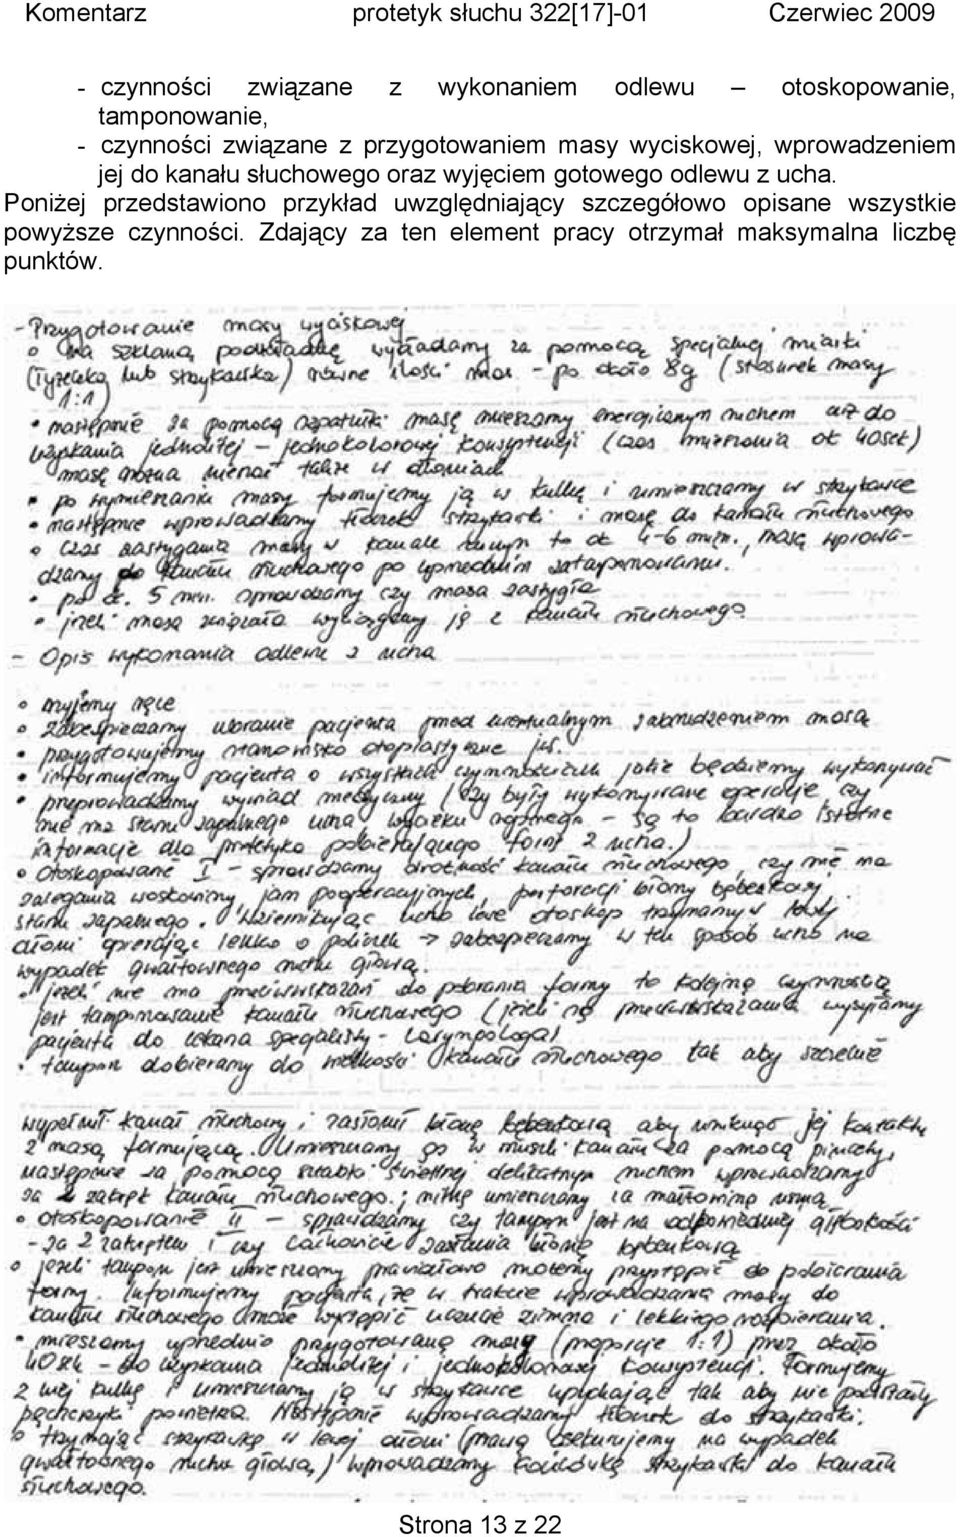 Komentarz protetyk słuchu 322[17]-01 Czerwiec 2009
- czynności związane z wykonaniem odlewu – otoskopowanie,
tamponowanie,
- czynności związane z przygotowaniem masy wyciskowej, wprowadzeniem
jej do kanału słuchowego oraz wyjęciem gotowego odlewu z ucha.
Poniżej przedstawiono przykład uwzględniający szczegółowo opisane wszystkie
powyższe czynności. Zdający za ten element pracy otrzymał maksymalna liczbę
punktów.
- Przygotowanie masy wyciskowej
na szklaną podkładkę wykładamy za pomocą specjalnej miarki
(łyżeczka lub strzykawka) równe ilości mas - po około 8g (stosunek masy
1:1)
• następnie za pomocą szpatułki masę mieszamy energicznym ruchem aż do
uzyskania jednolitej - jednokolorowej konsystencji (czas mieszania ok 40sek)
masę można mieszać także w dłoniach
• po wymieszaniu masy formujemy ją w kulkę i umieszczamy w strzykawce
• następnie wprowadzamy tłoczek strzykawki i masę do kanału słuchowego
• czas zastygania masy w kanale to ok 4-6 min., masę wprowa-
dzamy do kanału słuchowego po uprzednim zatamponowaniu.
• po ok. 5 min. sprawdzamy czy masa zastygła
• jeżeli masa wyciągamy ją z kanału słuchowego
- Opis wykonania odlewu z ucha
• myjemy ręce
• zabezpieczamy ubranie pacjenta przed ewentualnym zabrudzeniem masą
• przygotowujemy stanowisko otoplastyczne
• informujemy pacjenta o wszystkich czynnościach jakie będziemy wykonywać
• przeprowadzamy wywiad medyczny (czy były wykonywane operacje czy
nie ma stanu zapalnego ucha wycieku ropnego - są to bardzo istotne
informacje dla protetyka pobierającego formę z ucha.)
• Otoskopowanie I - sprawdzamy drożność kanału słuchowego, czy nie ma
zalegania woskowiny, jam pooperacyjnych, perforacji błony bębenkowej,
stanu zapalnego. Wziernikując ucho lewe otoskop trzymamy w lewej
dłoni opierając lekko o policzek → zabezpieczamy w ten sposób ucho na
wypadek gwałtownego ruchu głową.
• jeżeli nie ma przeciwwskazań do pobrania formy to kolejną czynnością
jest tamponowanie kanału słuchowego (jeżeli są przeciwwskazania wysyłamy
pacjenta do lekarza specjalisty - Laryngologa)
• tampon dobieramy do wielkości kanału słuchowego tak aby szczelnie
wypełnił kanał słuchowy i zasłonił błonę bębenkową aby uniknąć jej kontaktu
z masą formującą. Umieszczamy go w kanału za pomocą pincety,
następnie za pomocą świetlnej delikatnym ruchem wprowadzamy
za 2 zakręt kanału słuchowego.
• otoskopowanie II - sprawdzamy czy tampon jest na odpowiedniej głębokości
- za 2 zakrętem i czy całkowicie zasłania błonę bębenkową
• jeżeli tampon jest umieszczony prawidłowo możemy przystąpić do pobierania
formy. Informujemy pacjenta, że w trakcie wprowadzania masy do
kanału słuchowego może wystąpić uczucie zimna i lekkiego rozpierania.
• mieszamy uprzednio przygotowaną masę (proporcje 1:1) przez około
40 sek - do uzyskania jednolitej i jednokolorowej konsystencji. Formujemy
z niej kulkę i umieszczamy ją w strzykawce upychając tak aby nie powstały
pęcherzyki powietrza. Następnie wprowadzamy tłoczek do strzykawki.
• trzymając strzykawkę w lewej dłoni (prawą asekurujemy na wypadek
gwałtownego ruchu głową,) wprowadzamy końcówkę strzykawki do kanału
słuchowego.
Strona 13 z 22